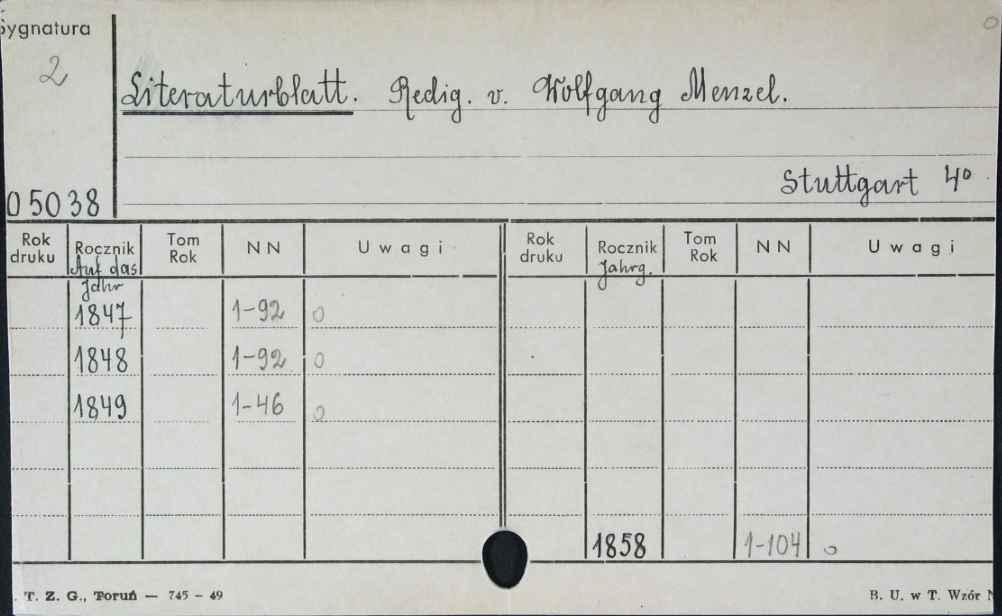 Sygnatura
2
Literaturblatt. Redig. v. Wolfgang Menzel.
Stuttgart 4°
05038
Rok druku Rocznik Auf das Jahr Tom Rok NN Uwagi Rok druku Rocznik Jahrg. Tom Rok NN Uwagi
1847 1-92 o
1848 1-92 o
1849 1-46 o
1858 1-104 o
T. Z. G., Toruń — 745 - 49 B. U. w T. Wzór